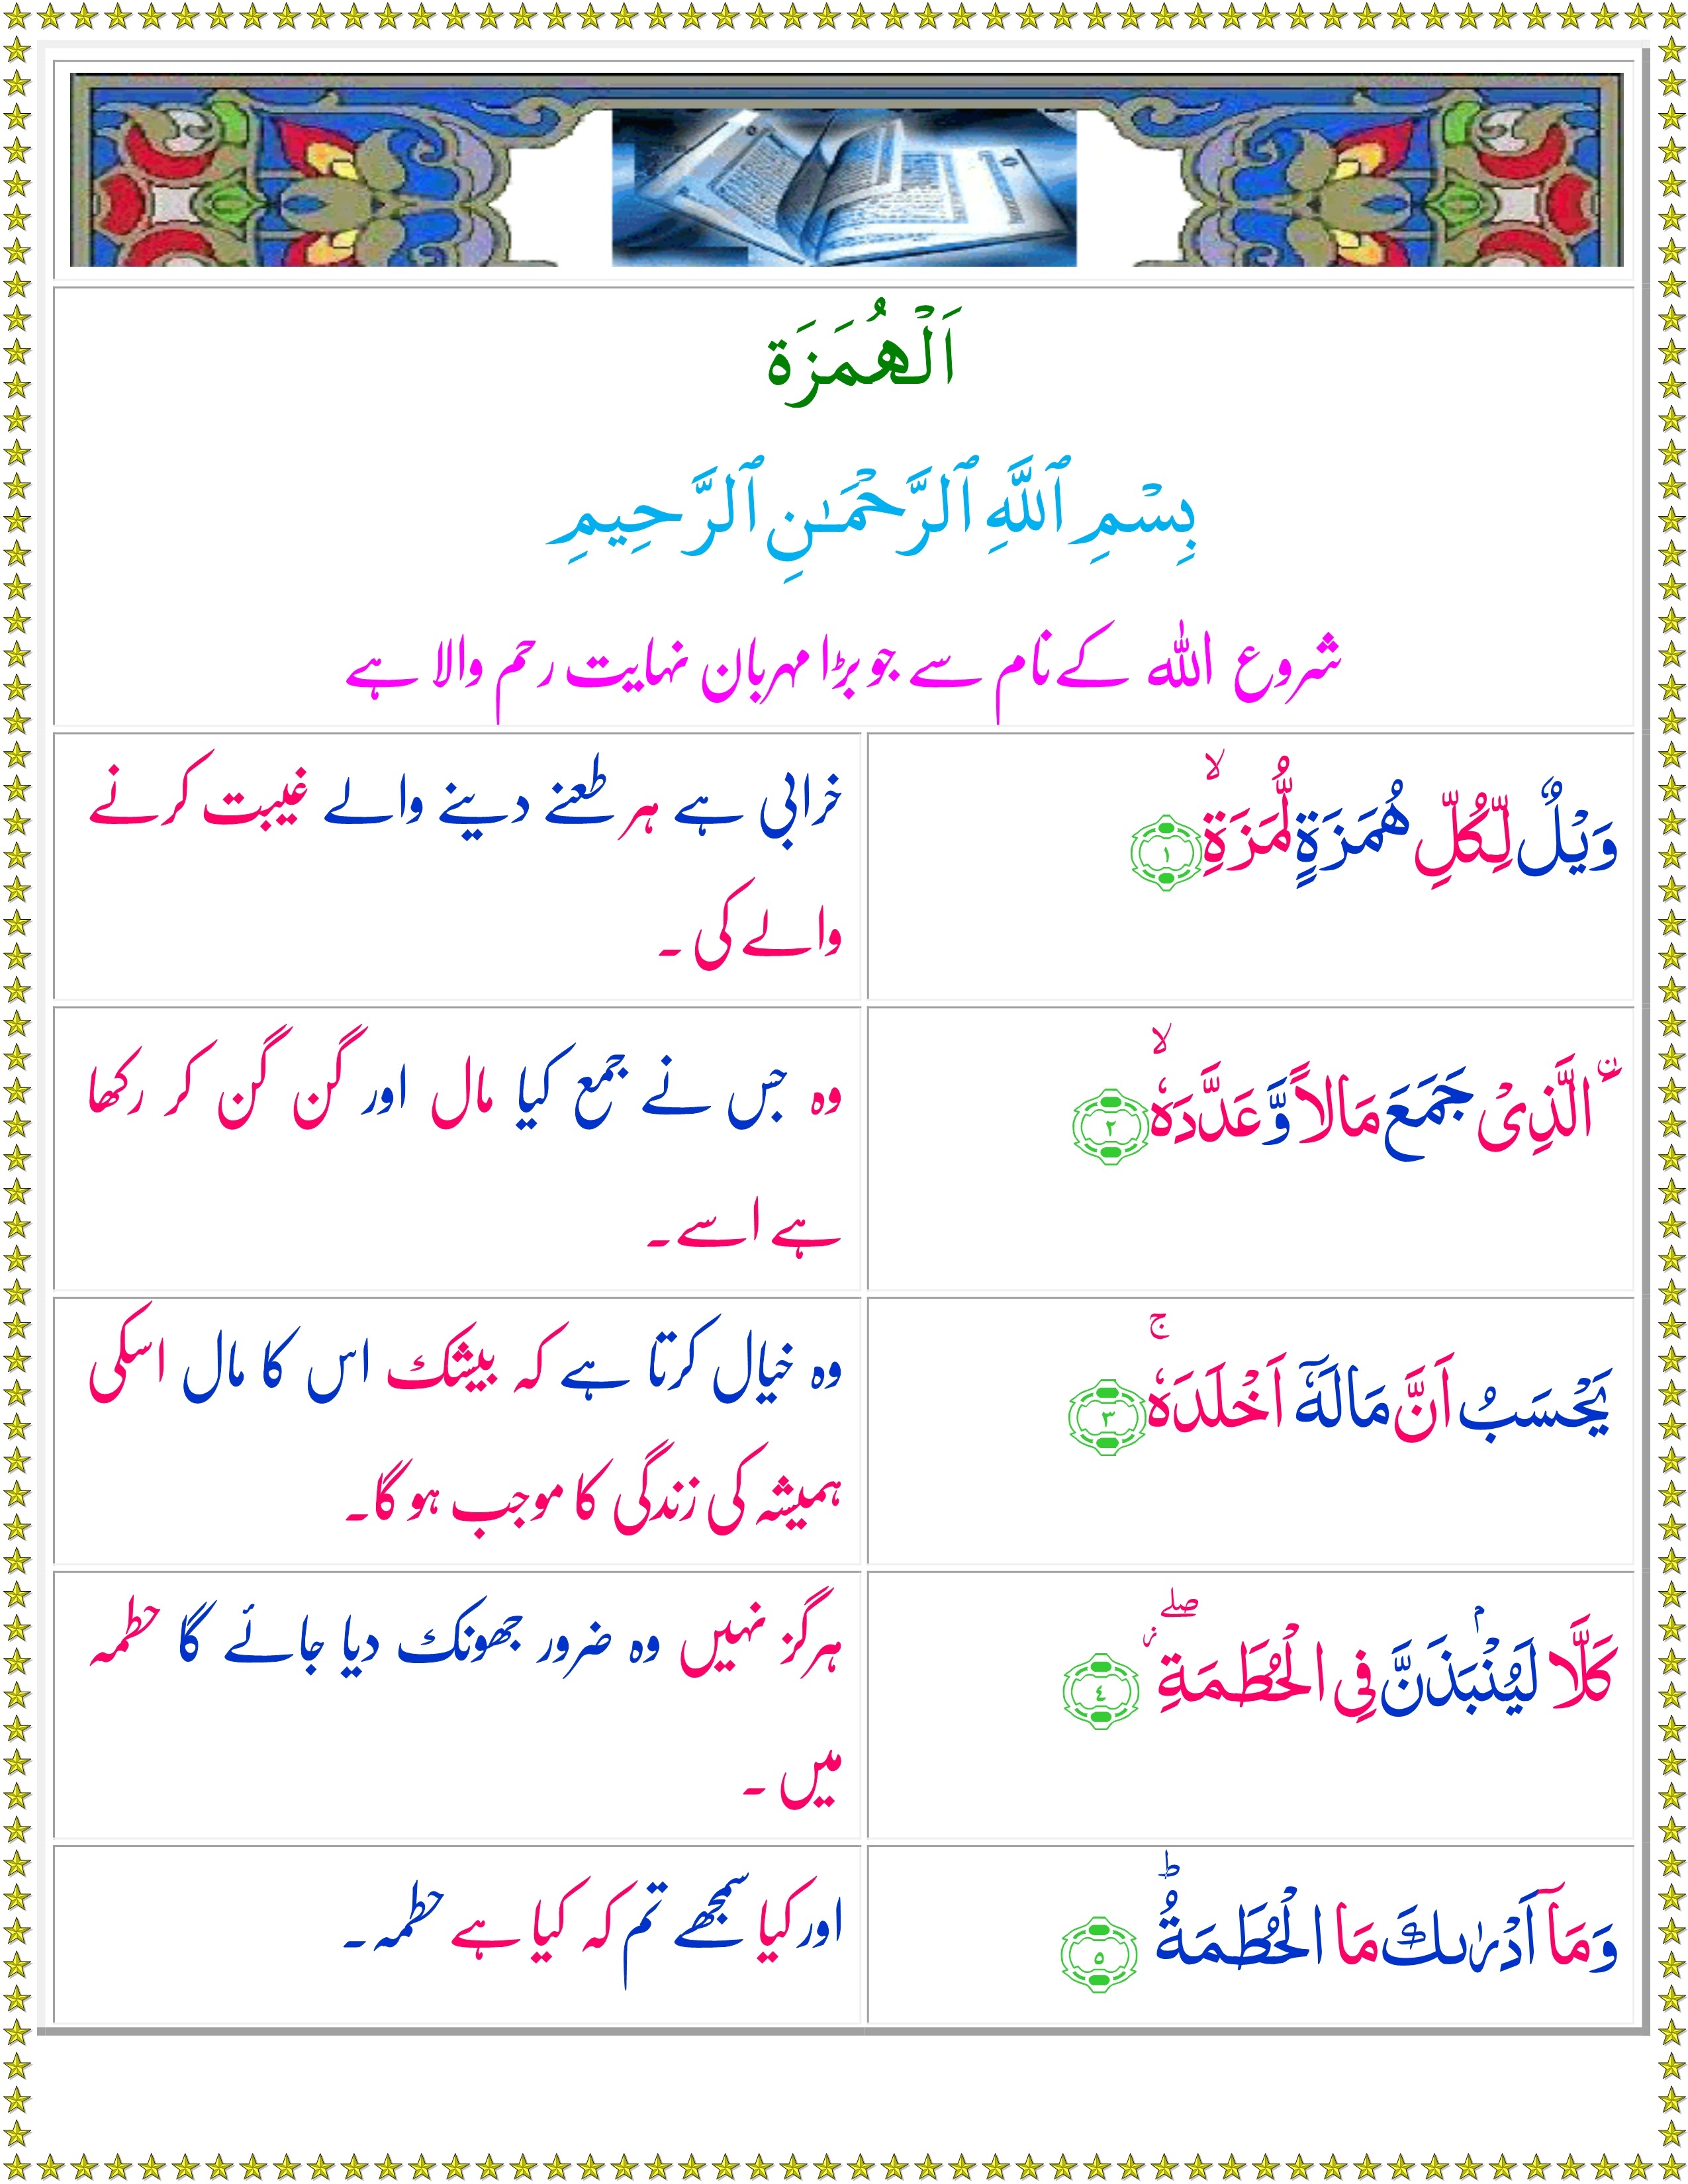 اَلْهُمَزَة
بِسْمِ ٱللَّهِ ٱلرَّحْمَـٰنِ ٱلرَّحِيمِ
شروع اللہ کے نام سے جو بڑا مہربان نہایت رحم والا ہے
وَيْلٌ لِّكُلِّ هُمَزَةٍ لُّمَزَةِ ۙ ﴿١﴾
خرابی ہے ہر طعنے دینے والے غیبت کرنے
والے کی ۔
ۨالَّذِىْ جَمَعَ مَالاً وَّعَدَّدَهٗ ۙ ﴿٢﴾
وہ جس نے جمع کیا مال اور گن گن کر رکھا
ہے اسے۔
يَحْسَبُ اَنَّ مَالَهٗۤ اَخْلَدَهٗ ۚ ﴿٣﴾
وہ خیال کرتا ہے کہ بیشک اس کا مال اسکی
ہمیشہ کی زندگی کا موجب ہو گا۔
كَلَّا لَيُنْۢبَذَنَّ فِى الْحُطَمَةِ ۖ ﴿٤﴾
ہرگز نہیں وہ ضرور جھونک دیا جائے گا حطمہ
میں ۔
وَمَاۤ اَدْرٰٮكَ مَا الْحُطَمَةُ ؕ ﴿٥﴾
اور کیا سمجھے تم کہ کیا ہے حطمہ۔